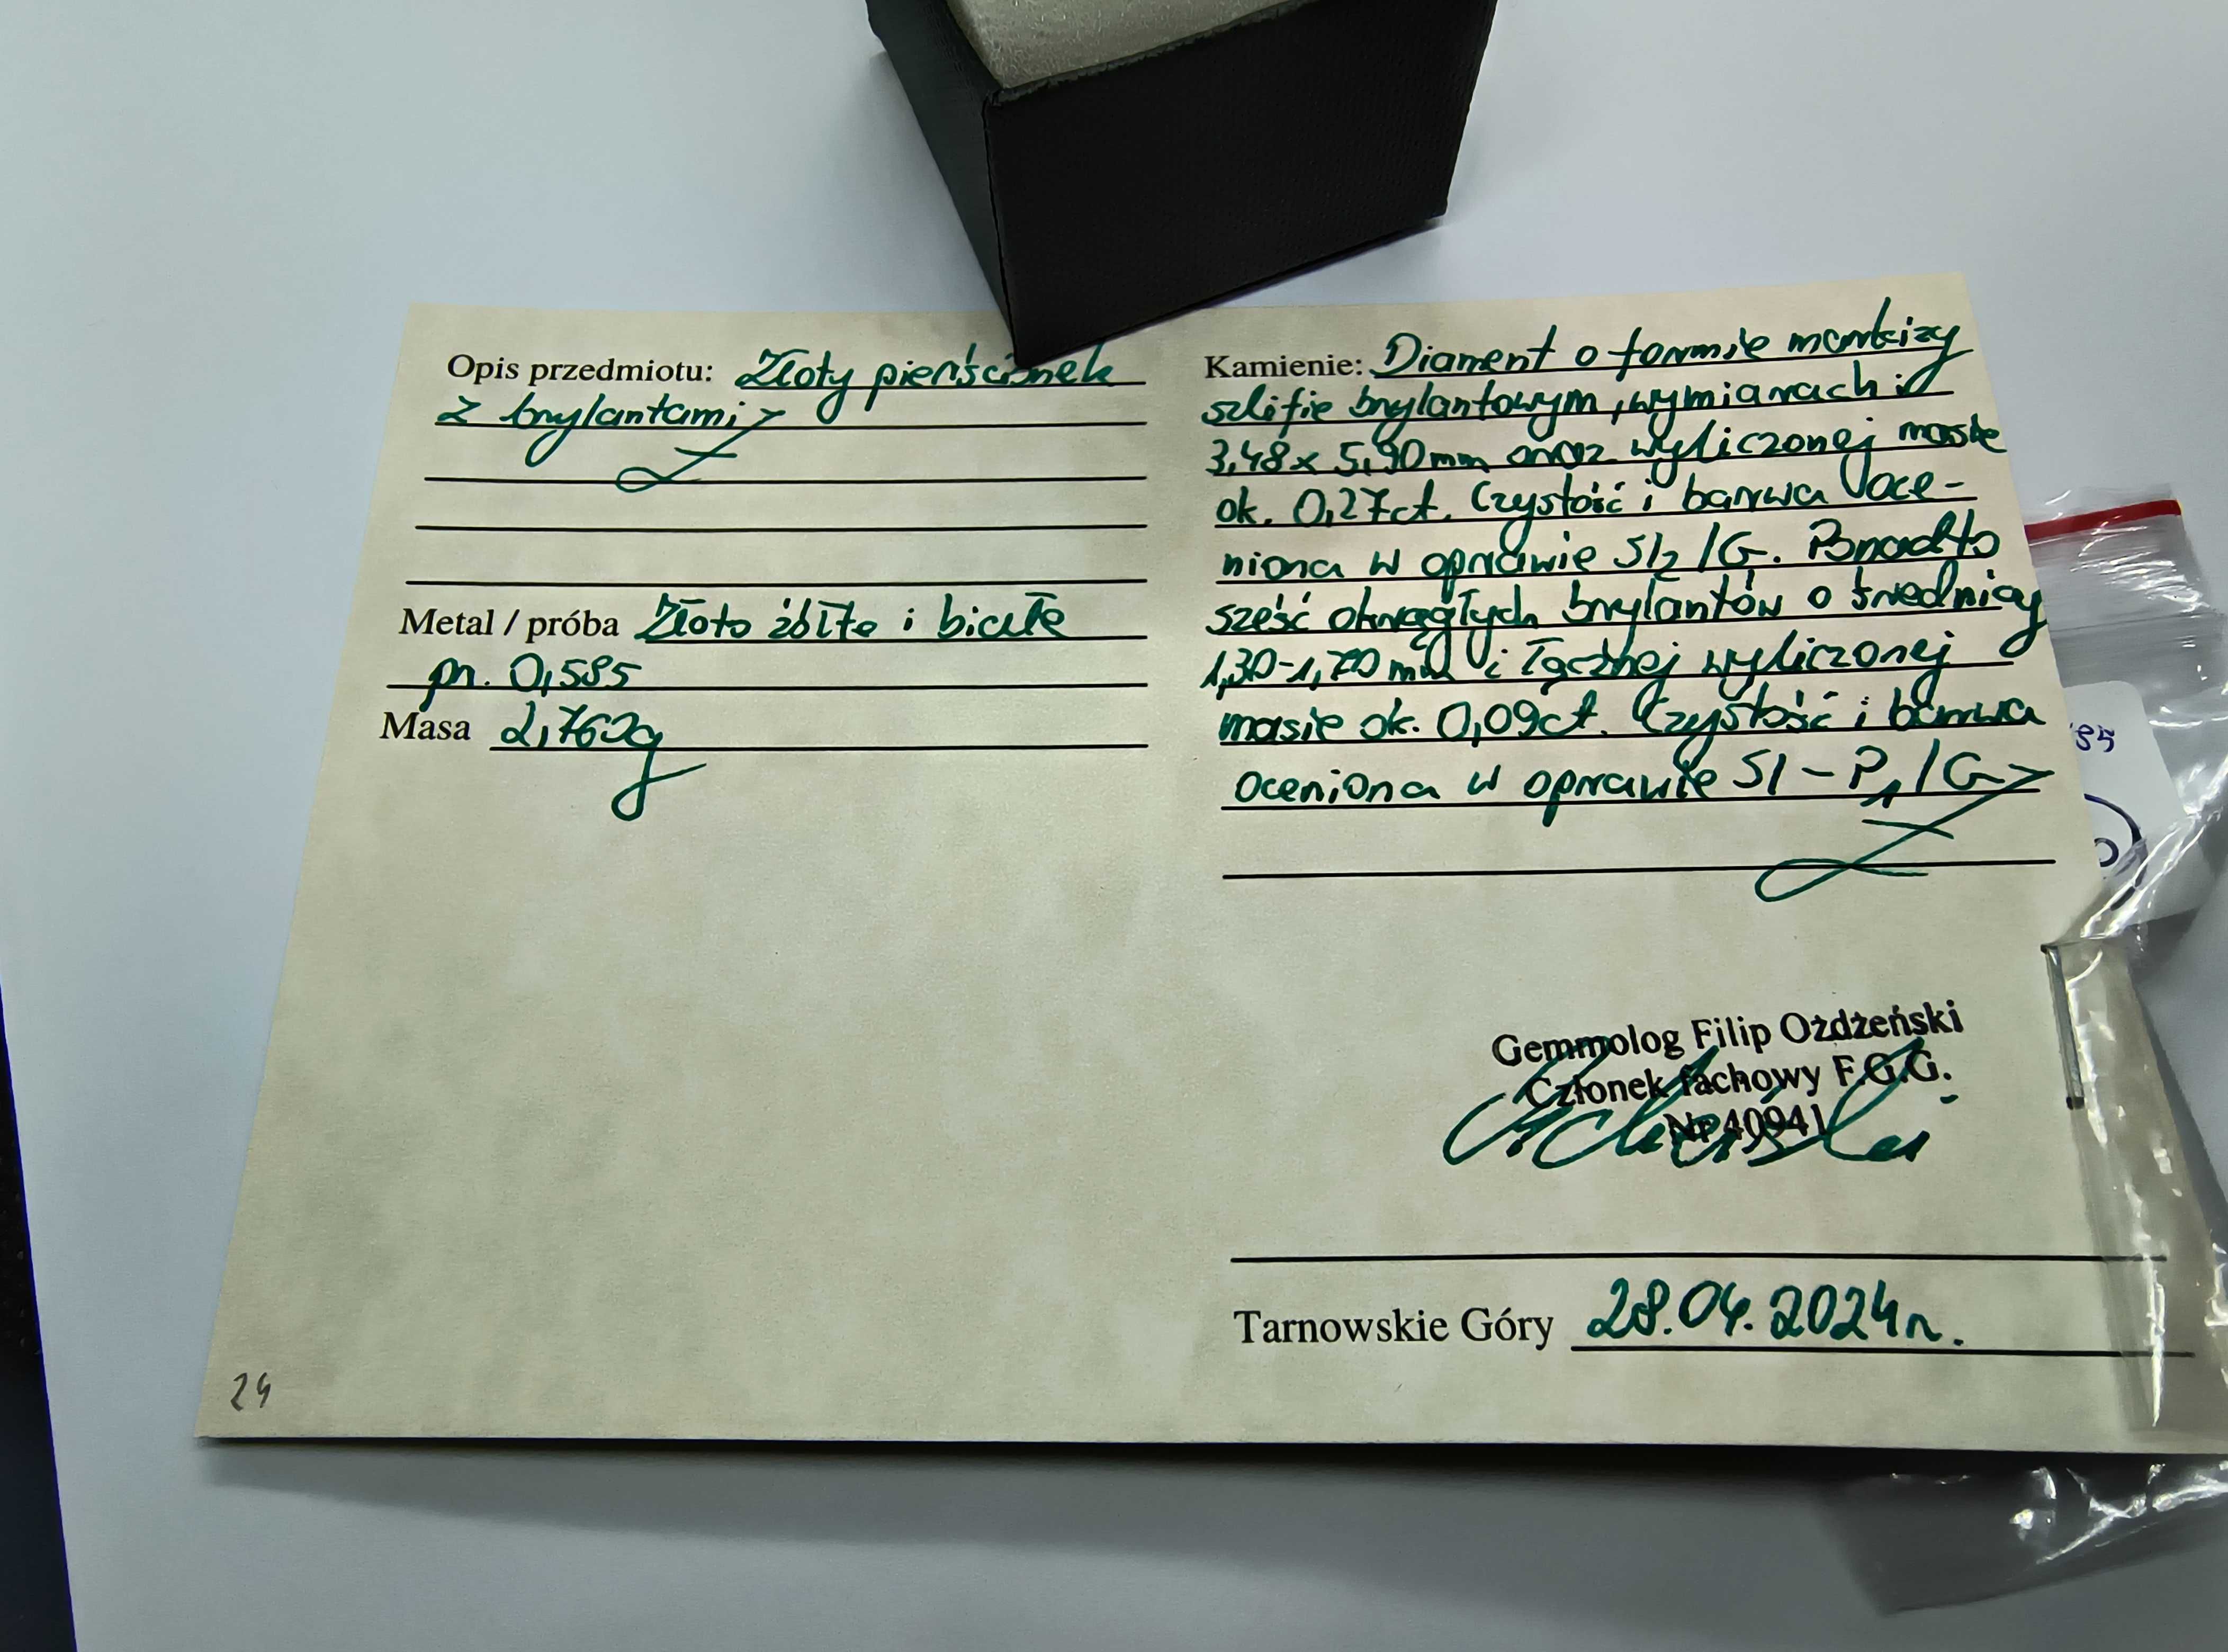 Opis przedmiotu: Złoty pierścionek
z brylantami
Metal / próba Złoto żółte i białe
pr. 0,585
Masa 2,760g
24
Kamienie: Diament o formie markizy
szlifie brylantowym, wymiarach
3,48 x 5,90mm oraz wyliczonej masie
ok. 0,27ct. Czystość i barwa oce-
niona w oprawie SI2 /G. Ponadto
sześć okrągłych brylantów o średnicy
1,30-1,70mm i łącznej wyliczonej
masie ok. 0,09ct. Czystość i barwa
oceniona w oprawie SI - P1 /G
Gemmolog Filip Ożdżeński
Członek fachowy F.G.G.
Nr 40941
Tarnowskie Góry 28.04.2024r.